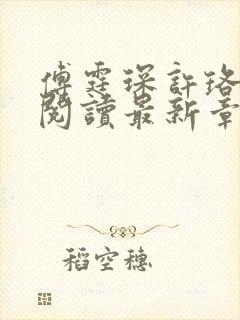 傅霆琛許珞
閱讀最新章
稻空穗